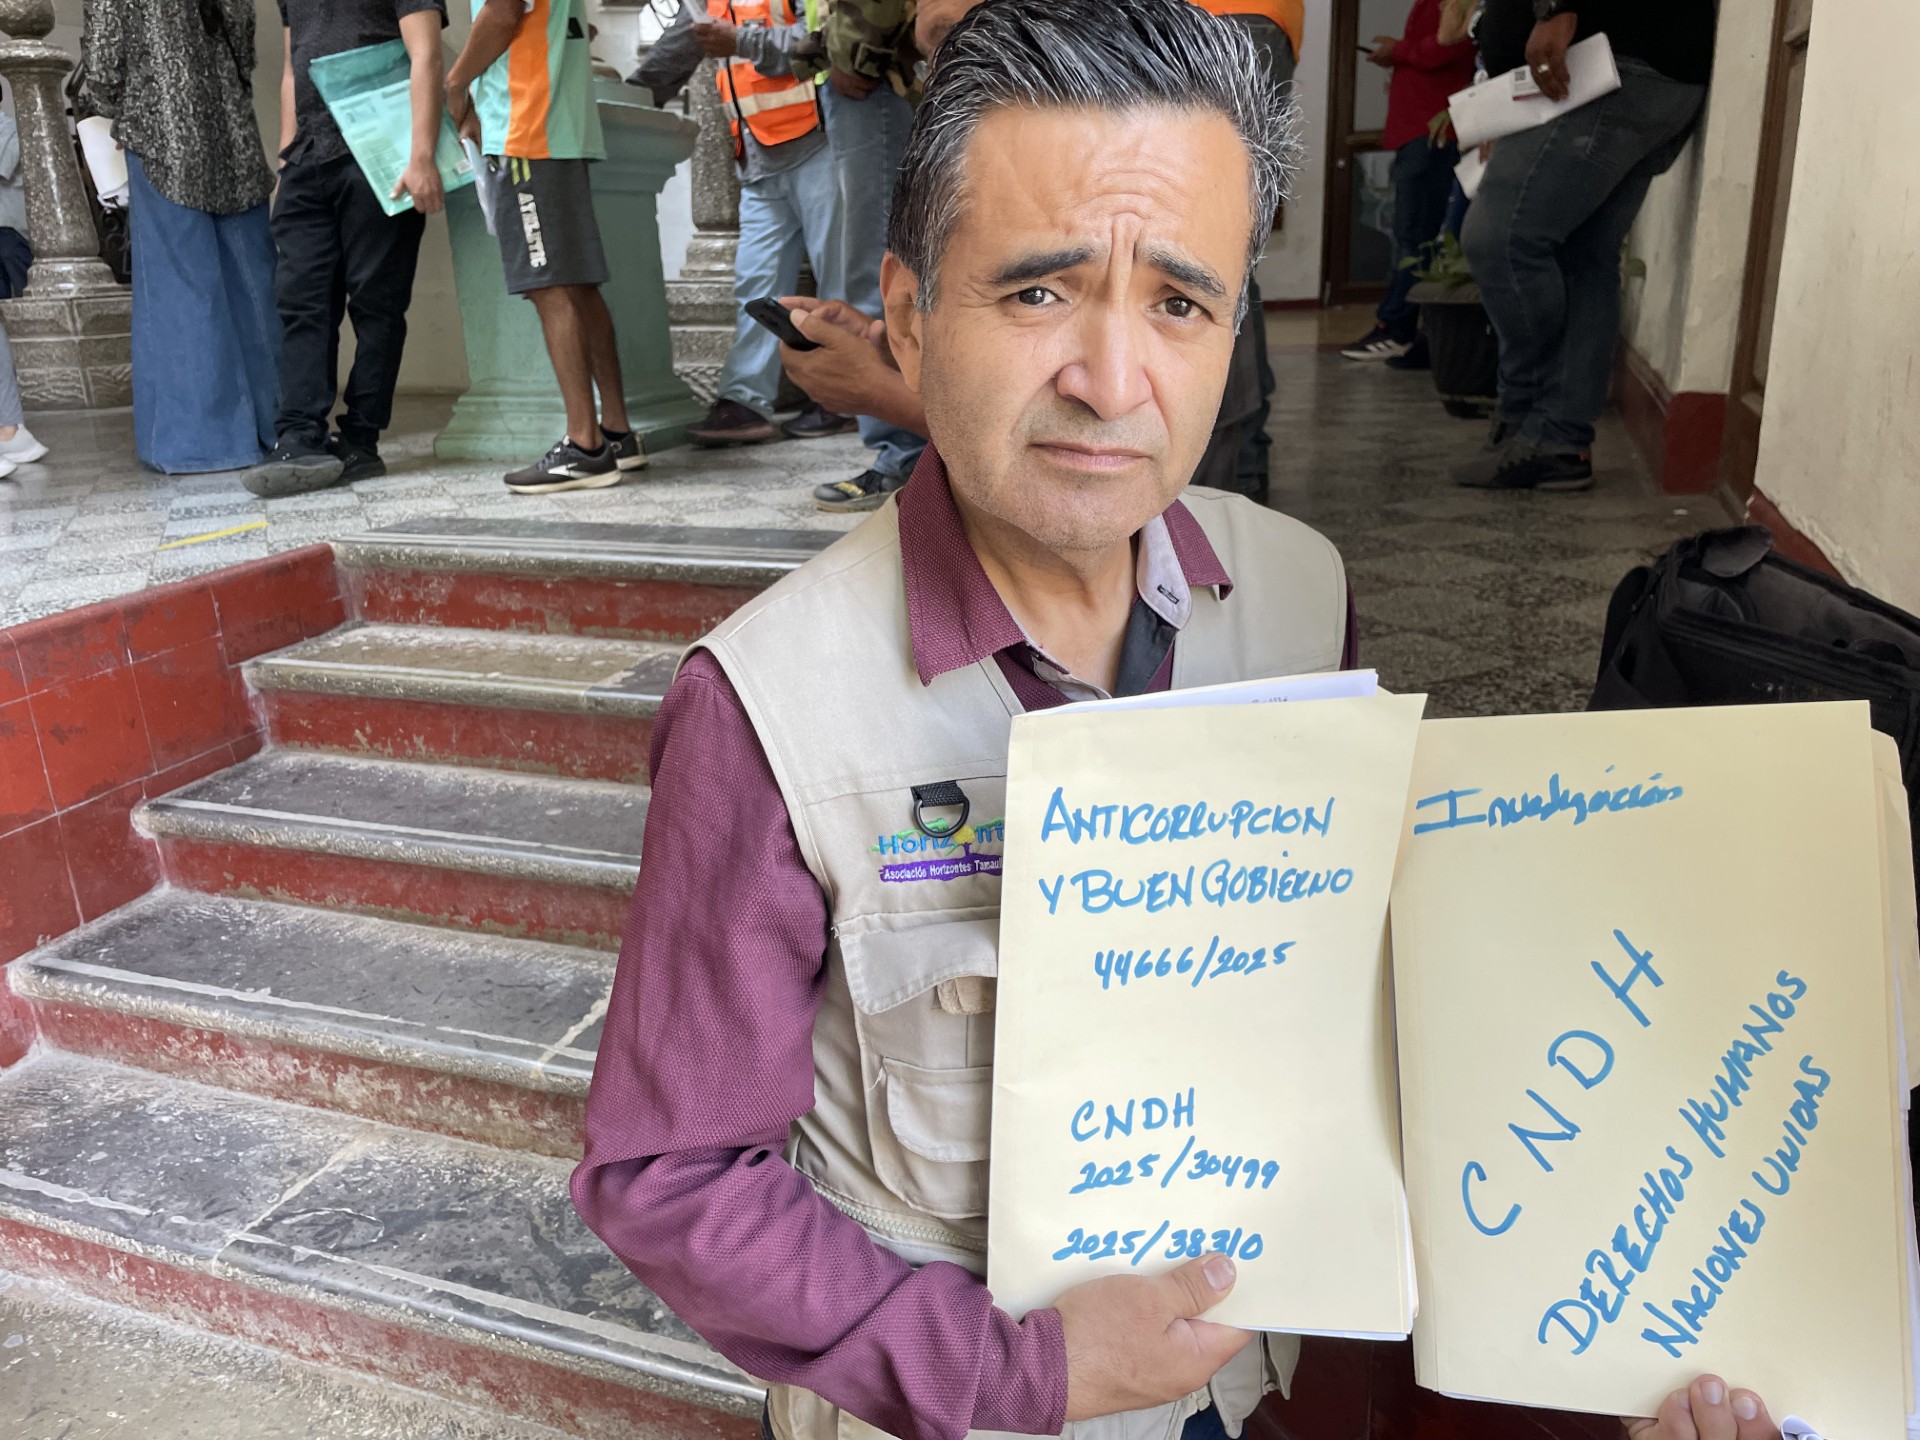 ATHLETIC
Horizont
Asociación Horizontes Tamauli
ANTICORRUPCION
Y BUEN GOBIERNO
44666/2025
CNDH
2025/30499
2025/38310
Investigación
CNDH
DERECHOS HUMANOS
NACIONES UNIDAS